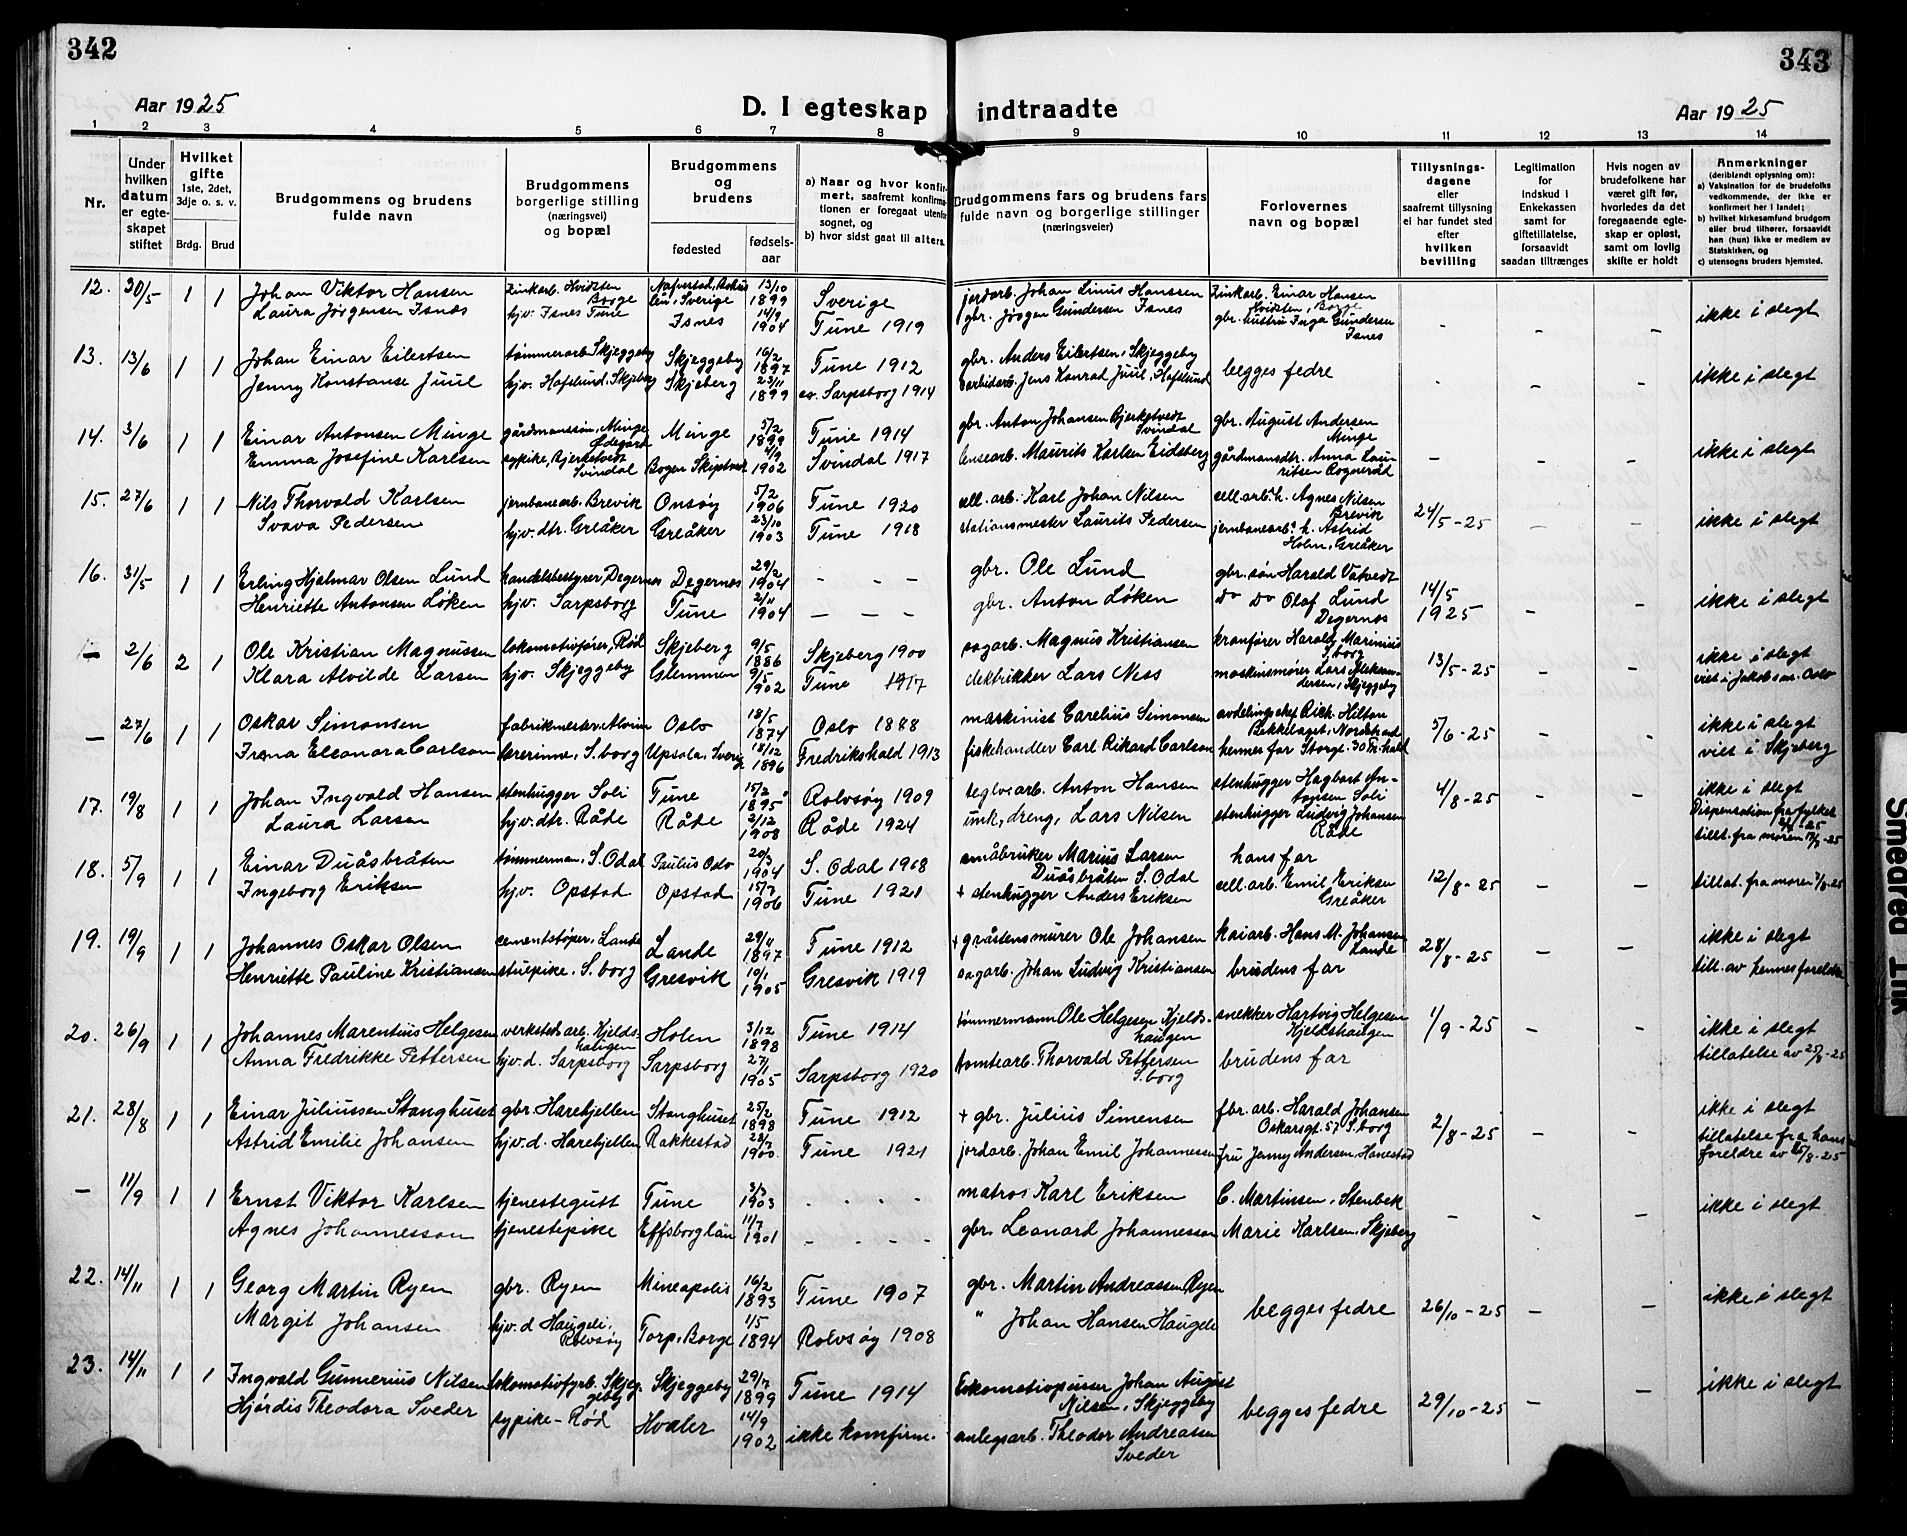 342
343
Aar 1925
D. I egteskap indtraadte
Aar 1925
1 2 3 4 5 6 7 8 9 10 11 12 13 14
Nr.
Under hvilken datum er egteskapet stiftet
Hvilket gifte 1ste, 2det, 3dje o. s. v.
Brdg. Brud
Brudgommens og brudens fulde navn
Brudgommens borgerlige stilling (næringsvei) og bopæl
Brudgommens og brudens
fødested
fødselsaar
a) Naar og hvor konfirmert, saafremt konfirmationen er foregaat utenfor sognet, og
b) hvor sidst gaat til alters.
Brudgommens fars og brudens fars fulde navn og borgerlige stillinger (næringsveier)
Forlovernes navn og bopæl
Tillysningsdagene eller saafremt tillysning ei har fundet sted efter hvilken bevilling
Legitimation for indskud i Enkekassen samt for giftetillatelse, forsaavidt saadan tiltrænges
Hvis nogen av brudefolkene har været gift før, hvorledes da det foregaaende egteskap er opløst, samt om lovlig skifte er holdt
Anmerkninger (deriblandt oplysning om):
a) Vaksination for de brudefolks vedkommende, der ikke er konfirmert her i landet;
b) hvilket kirkesamfund brudgom eller brud tilhører, forsaavidt han (hun) ikke er medlem av Statskirken, og
c) utensogns bruders hjemsted.
12. 30/5 1 1 Johan Viktor Hansen Zinkarb. Hvidsten Borge Sverige 13/10 1899 Sverige jordarb. Johan Linus Hanssen Zinkarb. Einar Hansen Hvidsten, Borge - - - ikke i slegt
Laura Jörgensen Isnes hjv. Isnes Tune Isnes 14/9 1904 Tune 1919 gbr. Jörgen Gundersen Isnes gbr. hustru Inga Gundersen Isnes
13. 13/6 1 1 Johan Einar Eilertsen tømmerarb Skjeggeby Skjeggeby 16/2 1897 Tune 1912 gbr. Anders Eilertsen, Skjeggeby begges fedre - - - ikke i slegt
Jenny Konstanse Juul hjv. Hafslund, Skjeberg Skjeberg 23/11 1899 Sarpsborg 1914 Jens Konrad Juul, Hafslund
14. 3/6 1 1 Einar Antonsen Minge gårdmanssøn, Minge Ødegård Minge 5/2 1899 Tune 1914 gbr. Anton Johansen Bjerketvedt Svindal gbr. August Andersen Minge - - - ikke i slegt
Emma Josefine Karlsen sypike, Bjerketvedt Svindal Bogen Skiptvedt 1902 Svindal 1917 lensearb. Maurits Karlsen Eidsberg gårdmansdtr. Anna Lauritsen Rognerød
15. 27/6 1 1 Nils Thorvald Karlsen jernbanearb. Brevik Onsøy 5/2 1906 Tune 1920 cell. arb. Karl Johan Nilsen cell. arb. h. Agnes Nilsen Brevik 24/5-25 - - ikke i slegt
Svava Pedersen hjv. dtr. Greåker Greåker 23/10 1903 Tune 1918 stationsmester Laurits Pedersen jernbanearb. h. Astrid Holm, Greåker
16. 31/5 1 1 Erling Hjalmar Olsen Lund handelsbestyrer, Degernes Degernes 29/2 1904 - - - gbr. Ole Lund gbr. søn Harald Vatvedt 14/5 1925 - - ikke i slegt
Henriette Antonsen Løken hjv. Sarpsborg Tune 2/11 1904 - - - gbr. Anton Løken do do Olaf Lund Degernes
- 2/6 2 1 Ole Kristian Magnussen lokomotivfører, Rød Skjeberg 9/5 1886 Skjeberg 1900 sagarb. Magnus Kristiansen kranfører Harald Marinius S.borg 13/5-25 - - ikke i slegt
Klara Alvilde Larsen hjv. Skjeggeby Glemmen 9/5 1902 Tune 1917 elektriker Lars Ness Lars Aleksandersen, Skjeggeby viet i Jakobs m. Oslo
- 27/6 1 1 Oskar Simonsen fabrikmester Oslo 18/5 1874 Oslo 1888 maskinist Carelius Simonsen avdelingschef Rich. Hilton Bekkelaget, Nordstrand 5/6-25 - - ikke i slegt
Irma Eleonora Carlson lærerinne, S.borg Upsala, Sverig 18/12 1896 Fredrikshald 1913 fiskehandler Carl Rikard Carlson hennes far Storgt. 30 Fr.hald viet i Skjeberg
17. 19/8 1 1 Johan Ingvald Hansen stenhugger Soli Tune 15/2 1895 Rolvsøy 1909 teglv.arb. Anton Hansen stenhugger Hagbart Antonsen Soli 4/8-25 - - ikke i slegt
Laura Larsen hjv. dtr. Råde Råde 2/12 1908 Råde 1924 Lars Nilsen stenhugger Ludvig Johansen Råde Dispensation fra fylket tillt. fra moren
18. 5/9 1 1 Einar Duåsbråten tømmerman, S. Odal Paulus Oslo 20/3 1904 S. Odal 1918 småbruker Marius Larsen Duåsbråten S. Odal hans far 12/8-25 - - tillat. fra moren
Ingeborg Eriksen hjv. Opstad Opstad 15/7 1906 Tune 1921 + stenhugger Anders Eriksen cell. arb. Emil Eriksen Greåker
19. 19/9 1 1 Johannes Oskar Olsen cementstøper, Lande Lande 29/11 1897 Tune 1912 + gråstensmurer Ole Johansen kaiarb. Hans M. Johansen Lande 28/8-25 - - ikke i slegt
Henriette Pauline Kristiansen stuepike. S.borg Gresvik 10/1 1905 Gresvik 1919 sagarb. Johan Ludvig Kristiansen brudens far till. av hennes foreldre
20. 26/9 1 1 Johannes Marentius Helgesen verkstedarb. Kjeldshaugen Holm 3/12 1898 Tune 1914 tømmermann Ole Helgesen Kjeldshaugen snekker Hartvig Helgesen Kjeldshaugen 1/9-25 - - ikke i slegt
Anna Fredrikke Pettersen hjv. d. Sarpsborg Sarpsborg 27/1 1905 Sarpsborg 1920 tomtearb. Thorvald Pettersen S.borg brudens far tillatelse av 25/8-25
21. 28/8 1 1 Einar Juliussen Stanghuset gbr. Harehjellen Stanghuset 25/2 1898 Tune 1912 + gbr. Julius Simensen fbr. arb. Harald Johansen Oskarsgt. 57 S.borg 2/8-25 - - ikke i slegt
Astrid Emilie Johansen hjv. d. Harehjellen Rakkestad 1900 Tune 1921 jordarb. Johan Emil Johannessen fru Jenny Andersen, Hanestad tillatelse fra hans foreldre av 15/8-25
- 11/9 1 1 Ernst Viktor Karlsen tjenestegutt Tune 3/3 1903 - - - - matros Karl Eriksen C. Martinsen, Stenbek - - - ikke i slegt
Agnes Johannesson tjenestepike Elfsborg län 11/7 1901 - - - - gbr. Leonard Johannesson Marie Karlsen, Skjeberg
22. 14/11 1 1 Georg Martin Ryen gbr. Ryen Mineapolis 16/2 1893 Tune 1907 gbr. Martin Andreassen Ryen begges fedre 26/10-25 - - ikke i slegt
Margit Johansen hjv. d Haugeli, Rolvsøy Torp, Borge 1/5 1894 Rolvsøy 1908 " Johan Hansen Haugeli
23. 14/11 1 1 Ingvald Gunnerius Nilsen lokomotivfyrb. Skjeggeby Skjeggeby 29/7 1899 Tune 1914 Lokomotivpusser Johan August Nilsen, Skjeggeby begges fedre 29/10-25 - - ikke i slegt
Hjördis Theodora Sveder sypike - Rød Hvaler 14/9 1902 ikke komfirm. anlegsarb. Theodor Andreassen Sveder
Smedred Tnk